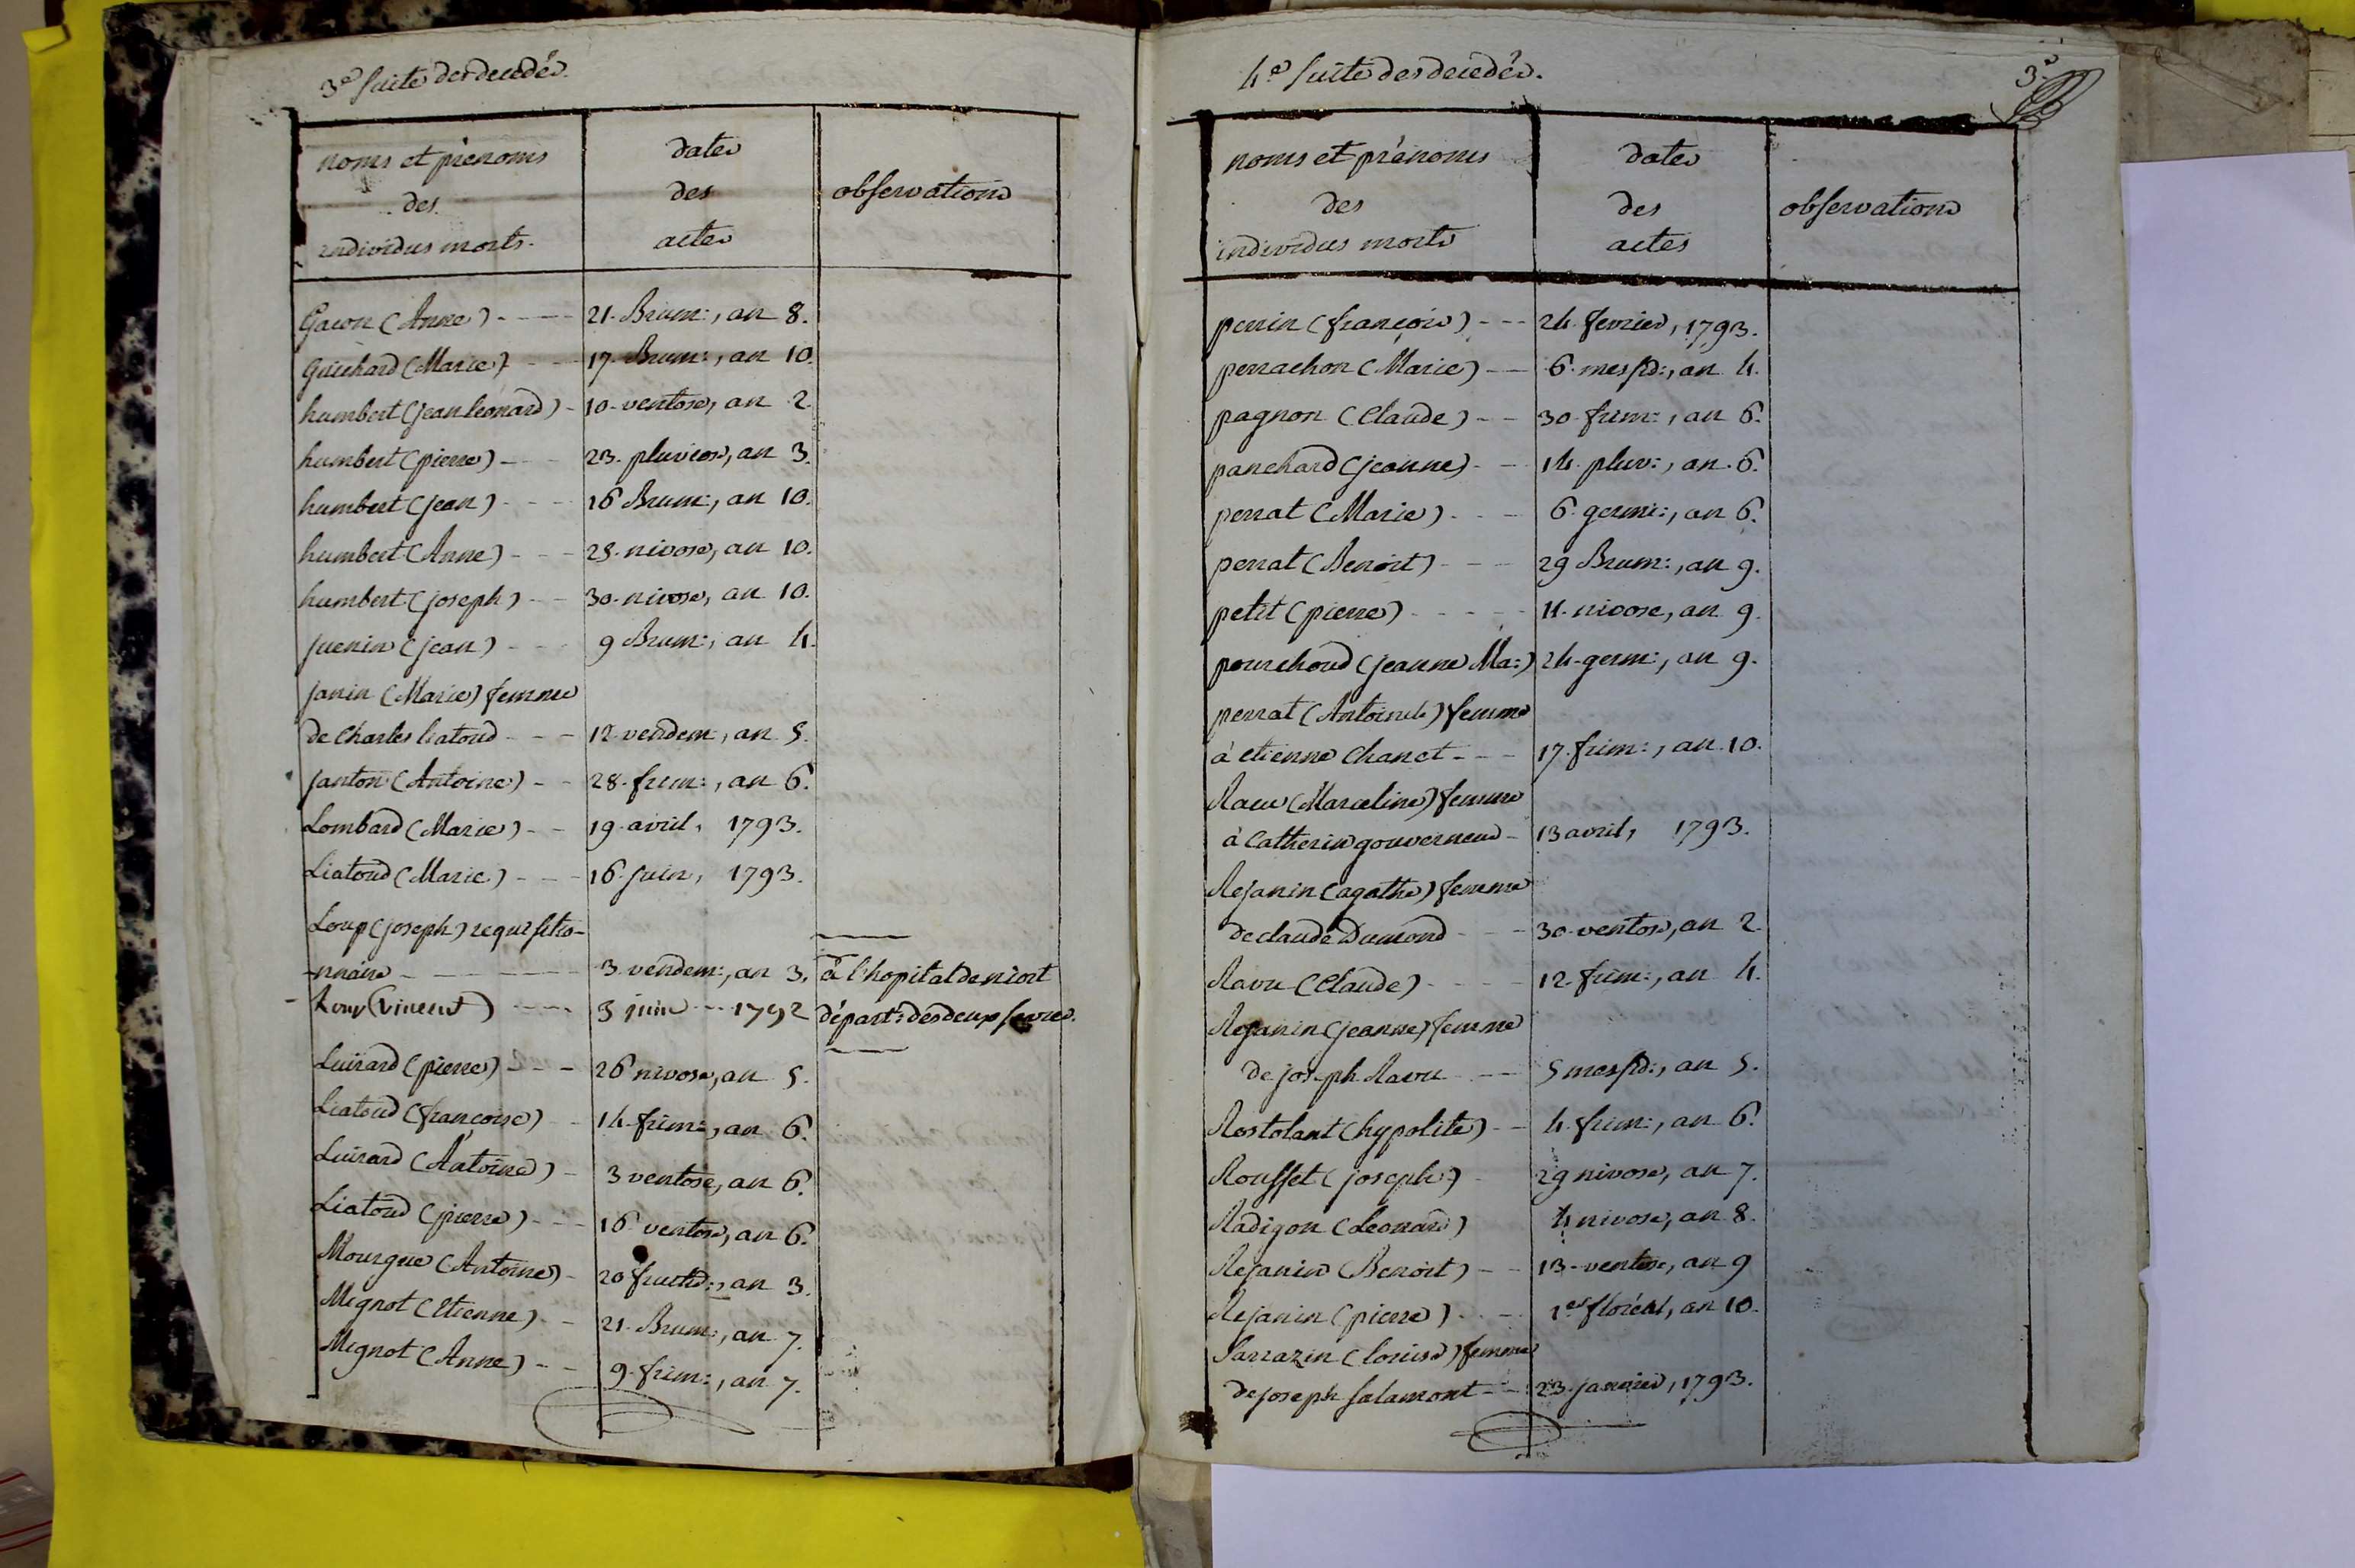 3e suite des decedés.
noms et prénoms
des
individus morts.
dates
des
actes
observations
Gacon (Anne) - - - - 21. Brum:, an 8.
Guichard (Marie) - - 17. Brum:, an 10.
humbert (jean leonard) - 10. ventose, an 2.
humbert (pierre) - - - 23. pluviose, an 3.
humbert (jean) - - - 16 Brum:, an 10.
humbert (Anne) - - - 25. nivose, an 10.
humbert (joseph) - - 30. nivose, an 10.
juenin (jean) - - - 9 Brum:, an 4.
janin (Marie) femme
de Charles liatoud - - - 12. vendem:, an 5.
janton (Antoine) - - 28. frim:, an 6.
Lombard (Marie) - - 19. avril, 1793.
Liatoud (Marie) - - - 16. juin, 1793.
Loup (joseph) requisitio-
-nnaire - - - - 3. vendem:, an 3. à l'hopital de niort
(vincent) - - - - 3 juin - - 1792 départ: des deux sevres.
Luirard (pierre) - - - 26 nivose, an 5.
Liatoud (françoise) - - 14. frim:, an 6.
Luirard (Antoine) - 3 ventose, an 6.
Liatoud (pierre) - - - 16 ventose, an 6.
Mourgue (Antoine) - 20 fructid:, an 3.
Mignot (Etienne) - - 21. Brum:, an 7.
Mignot (Anne) - - - 9. frim:, an 7.
4e suite des decedés.
3e
noms et prénoms
des
individus morts
dates
des
actes
observations
perrin (françois) - - - 24. fevrier, 1793.
perrachon (Marie) - - 6. messid:, an 4.
pagnon (Claude) - - 30. frim:, an 6.
panchard (jeanne) - - 14. pluv:, an. 6.
perrat (Marie) - - - 6. germi:, an 6.
perrat (Benoit) - - - 29 Brum:, an 9.
petit (pierre) - - - - 11. nivose, an 9.
pourchoud (jeanne Ma:) 24. germ:, an 9.
perrat (Antoinete) femme
à etienne Chanet - - - 17. frim:, an 10.
(Marceline) femme
à Catherin gouverneur - 13 avril, 1793.
Rejanin (agathe) femme
de claude Dumond - - - 30. ventose, an 2.
Ravu (Claude) - - - - 12. frim:, an 4.
Rejanin (jeanne) femme
de joseph Ravu - - 5 messid:, an 5.
Rostolant (hypolite) - - 4. frim:, an 6.
Rousset (joseph) - 29 nivose, an 7.
Radigon (Leonard) 4 nivose, an 8.
Rejanin (Benoit) - - 13. ventose, an 9
Rejanin (pierre) - - - 1er floréal, an 10.
Sarrazin (louise) femme
de joseph salamont - - 23. janvier, 1793.